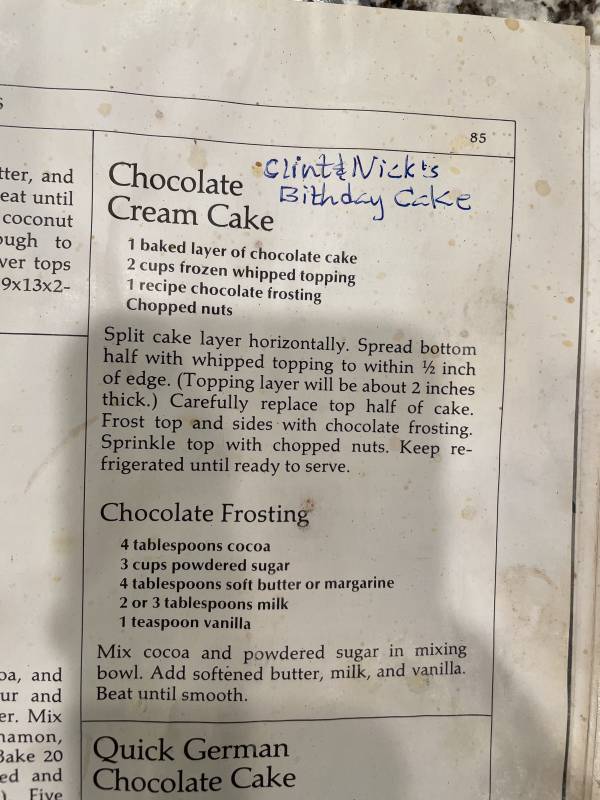 85
tter, and
eat until
coconut
ough to
ver tops
9x13x2-
Chocolate
Cream Cake
Clint & Nick's
Bithday Cake
1 baked layer of chocolate cake
2 cups frozen whipped topping
1 recipe chocolate frosting
Chopped nuts
Split cake layer horizontally. Spread bottom
half with whipped topping to within ½ inch
of edge. (Topping layer will be about 2 inches
thick.) Carefully replace top half of cake.
Frost top and sides with chocolate frosting.
Sprinkle top with chopped nuts. Keep re-
frigerated until ready to serve.
Chocolate Frosting
4 tablespoons cocoa
3 cups powdered sugar
4 tablespoons soft butter or margarine
2 or 3 tablespoons milk
1 teaspoon vanilla
Mix cocoa and powdered sugar in mixing
bowl. Add softened butter, milk, and vanilla.
Beat until smooth.
oa, and
ur and
er. Mix
namon,
Bake 20
ed and
) Five
Quick German
Chocolate Cake